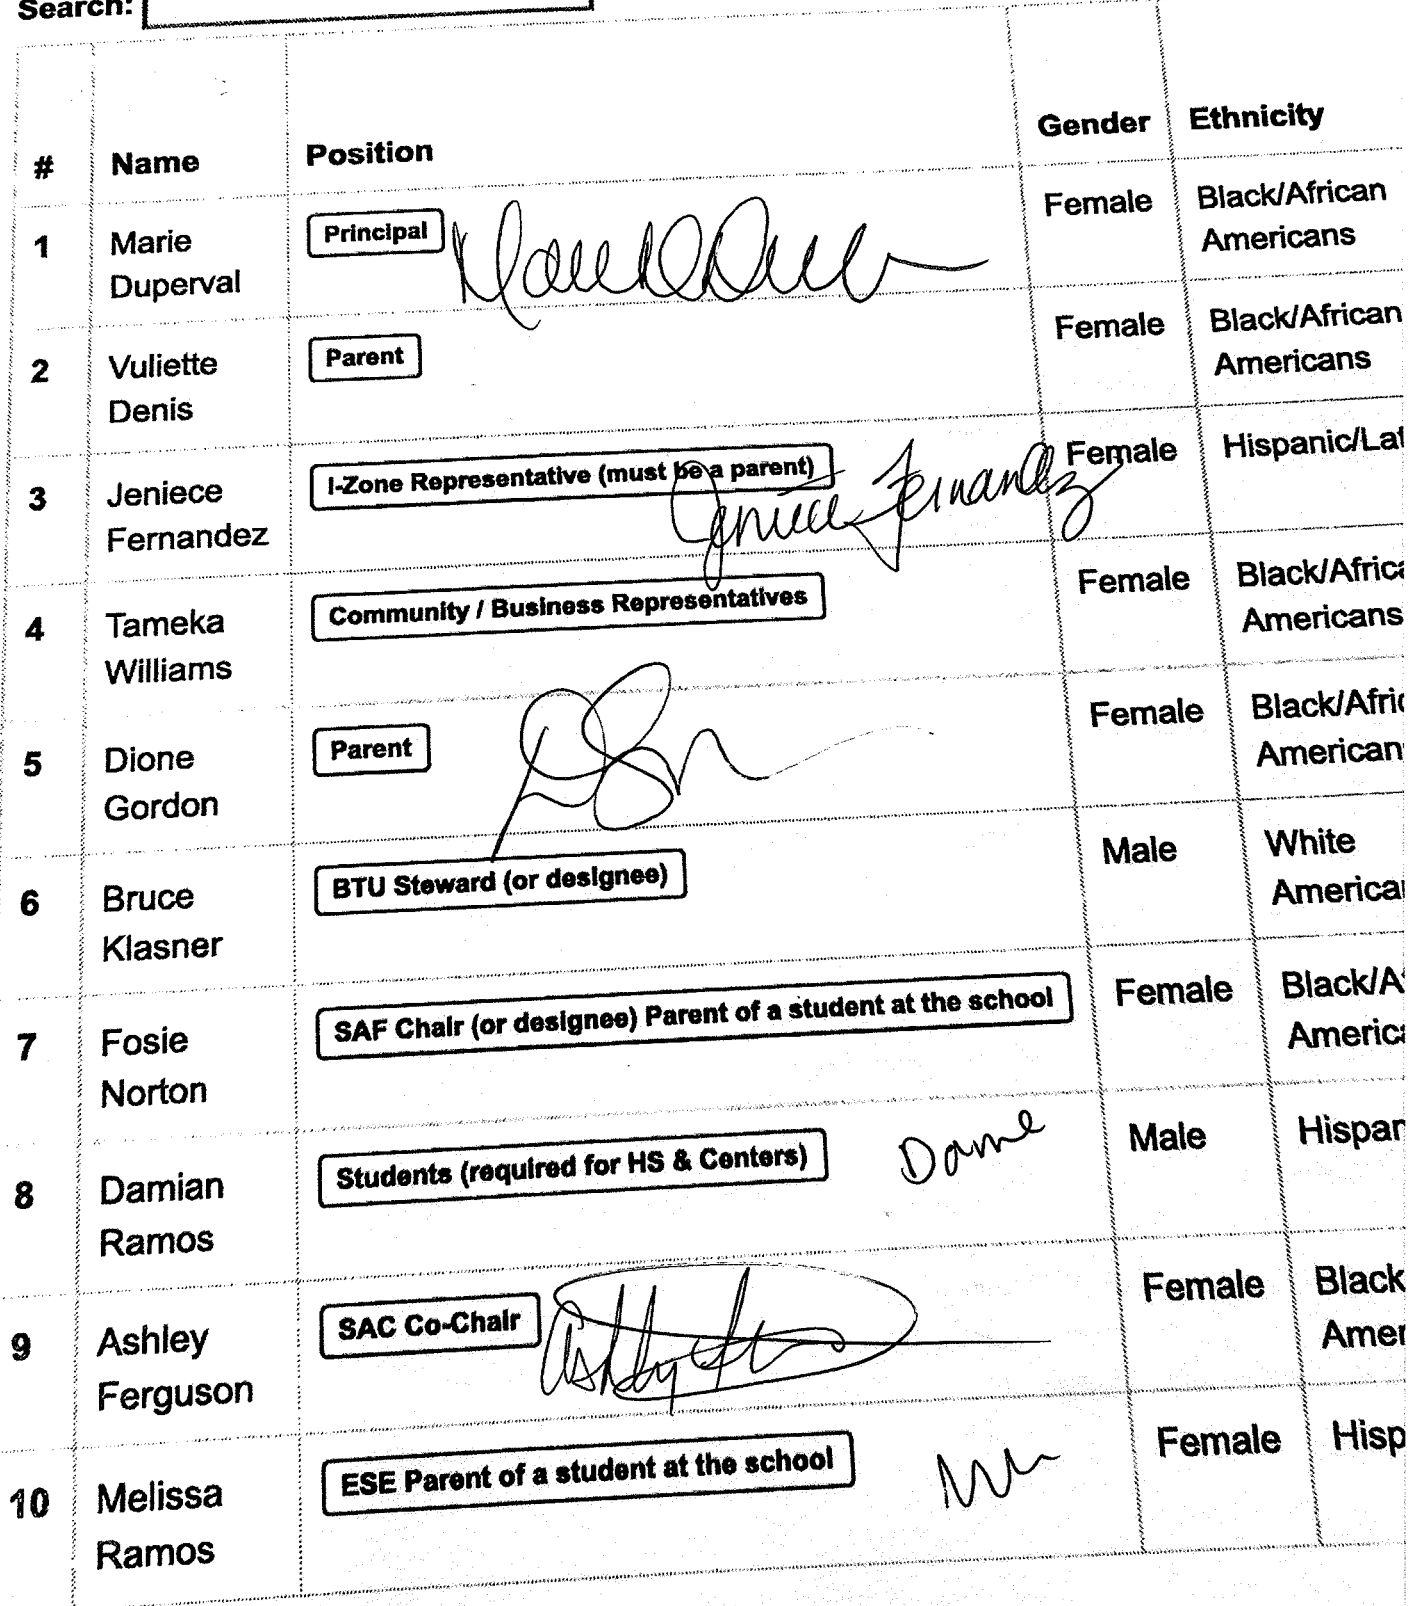 Search:
# Name Position Gender Ethnicity
1 Marie Duperval Principal Female Black/African Americans
2 Vuliette Denis Parent Female Black/African Americans
3 Jeniece Fernandez I-Zone Representative (must be a parent) Jeniece Fernandez Female Hispanic/Lat
4 Tameka Williams Community / Business Representatives Female Black/Africa Americans
5 Dione Gordon Parent Female Black/Afric American
6 Bruce Klasner BTU Steward (or designee) Male White America
7 Fosie Norton SAF Chair (or designee) Parent of a student at the school Female Black/A Americ
8 Damian Ramos Students (required for HS & Centers) Male Hispan
9 Ashley Ferguson SAC Co-Chair Ashley Female Black Amer
10 Melissa Ramos ESE Parent of a student at the school Female Hisp